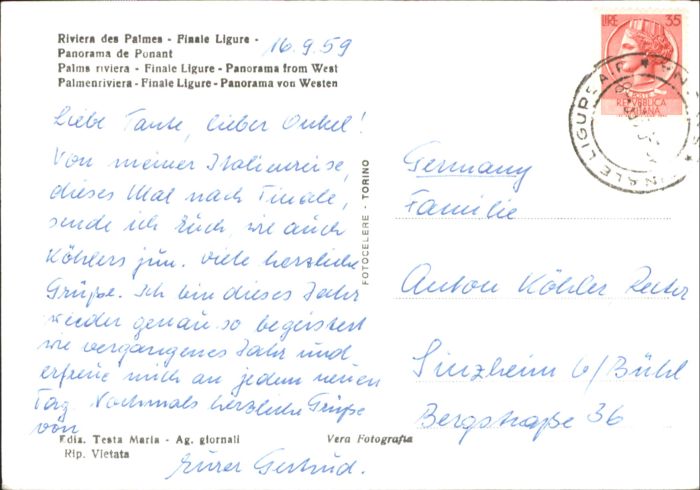 Riviera des Palmes - Finale Ligure -
Panorama de Ponant
Palms riviera - Finale Ligure - Panorama from West
Palmenriviera - Finale Ligure - Panorama von Westen
16.9.59
Liebe Tante, lieber Onkel!
Von meiner Italienreise,
dieses Mal nach Finale,
sende ich Euch, wie auch
Köhlers jun. viele herzliche
Grüße. Ich bin dieses Jahr
wieder genau so begeistert
wie vergangenes Jahr und
erfreue mich an jedem neuen
Tag. Nochmals herzliche Grüße
von
Eurer Gertrud.
Ediz. Testa Maria - Ag. giornali
Rip. Vietata
Vera Fotografia
FOTOCELERE - TORINO
LIRE 35
REPVBBLICA
ITALIANA
FINALE LIGURE
Germany
Familie
Anton Köhler,
Sinzheim b/Bühl
Bergstraße 36